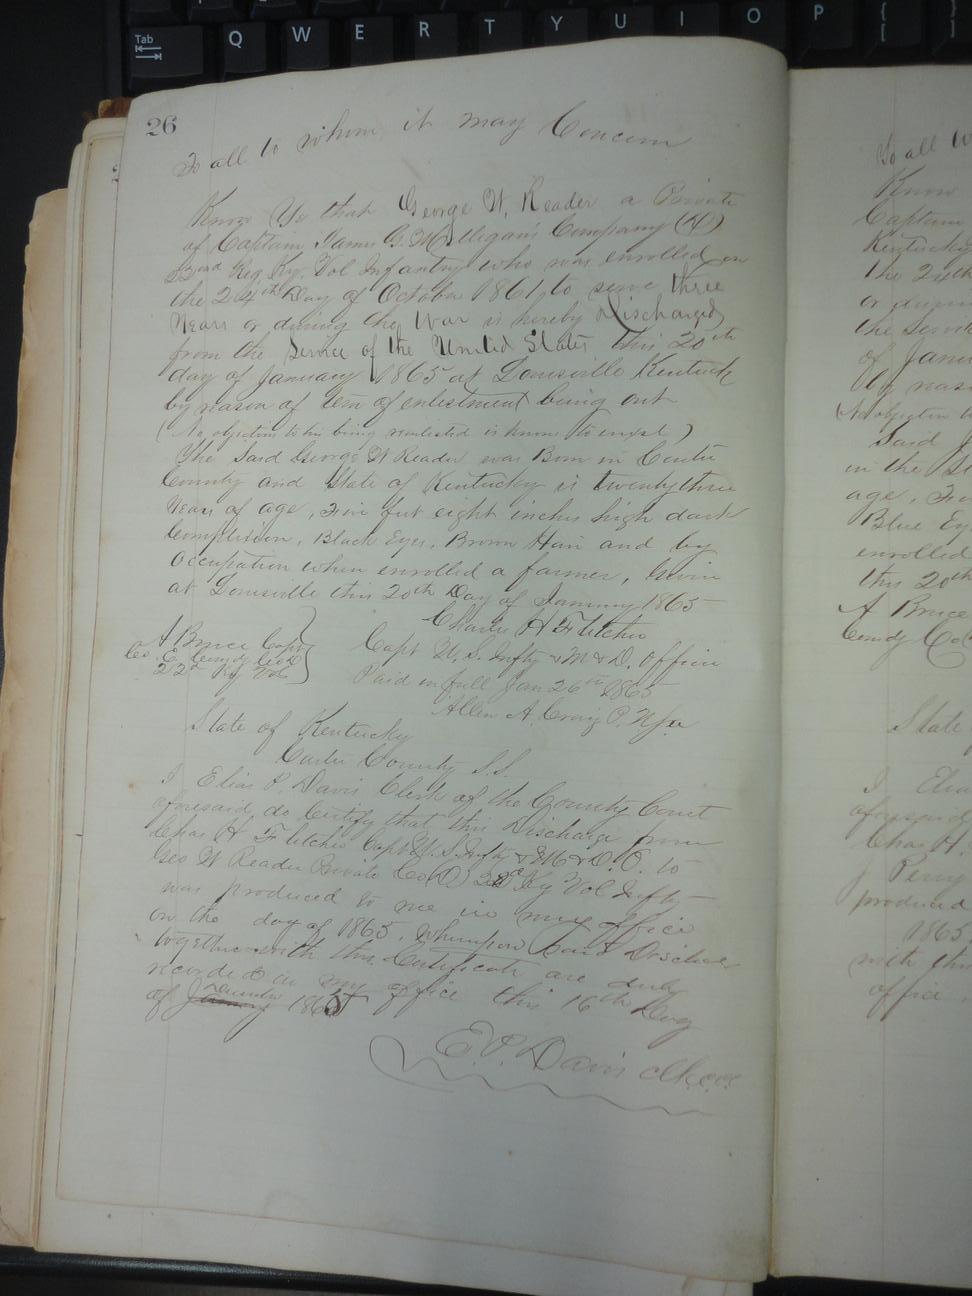 Tab
Q W E R T Y U I O P { [
26
To all to whom it may Concern
Know Ye that George W, Reader a Private
of Captain James G. Milligan's Company (D)
22nd Reg Ky, Vol Infantry who was enrolled on
the 24th Day of October 1861, to serve three
Years or during the War is hereby Discharged
from the Service of the United States this 20th
day of January 1865 at Louisville Kentucky
by reason of term of enlistment being out
(No objection to his being reenlisted is known to exist)
The Said George W Reader was Born in Carter
County and State of Kentucky is twenty three
Years of age, Five feet eight inches high dark
Complexion, Black Eyes, Brown Hair and by
occupation when enrolled a farmer, Given
at Louisville this 20th Day of January 1865
Charles H Fletcher
A Bruce Capt
Capt U.S. Infty & M & D. Officer
Co. E. Comdg Co D
22d Ky Vol
Paid in full Jan 26th 1865
Allen A. Craig P.
State of Kentucky
Carter County S.S.
I Elias P. Davis Clerk of the County Court
aforesaid do Certify that this Discharge from
Chas H Fletcher Capt U.S. Infty & M & D. O. to
Geo W Reader Private Co (D) 22d Ky Vol Infty
was produced to me in my office
on the day of 1865, whereupon Said Discharge
together with this Certificate are duly
recorded in my office this 16th Day
of January December 1865
E. P. Davis clk.c.c.
To all to
Know
Captain
Kentucky
the 24th
or during
the service
of Janu
by reas
(No objection
Said J
in the St
age, Five
Blue Ey
enrolled
this 20th
A Bruce
Comdg Co
State
I Elia
aforesaid
Chas H.
J Perry
produced
1865,
with this
office